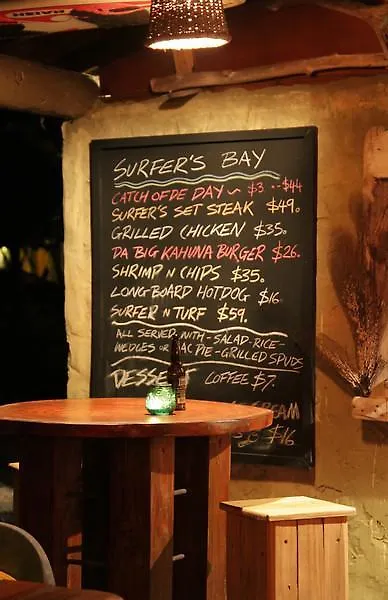 SURFER'S BAY
CATCH OF DE DAY ~ $3 --$44
SURFER'S SET STEAK $49.
GRILLED CHICKEN $35.
DA BIG KAHUNA BURGER $26.
SHRIMP N CHIPS $35.
LONGBOARD HOTDOG $16.
SURFER N TURF $59.
ALL SERVED WITH - SALAD - RICE -
WEDGES OR MAC PIE - GRILLED SPUDS
DESSERT COFFEE $7.
$16